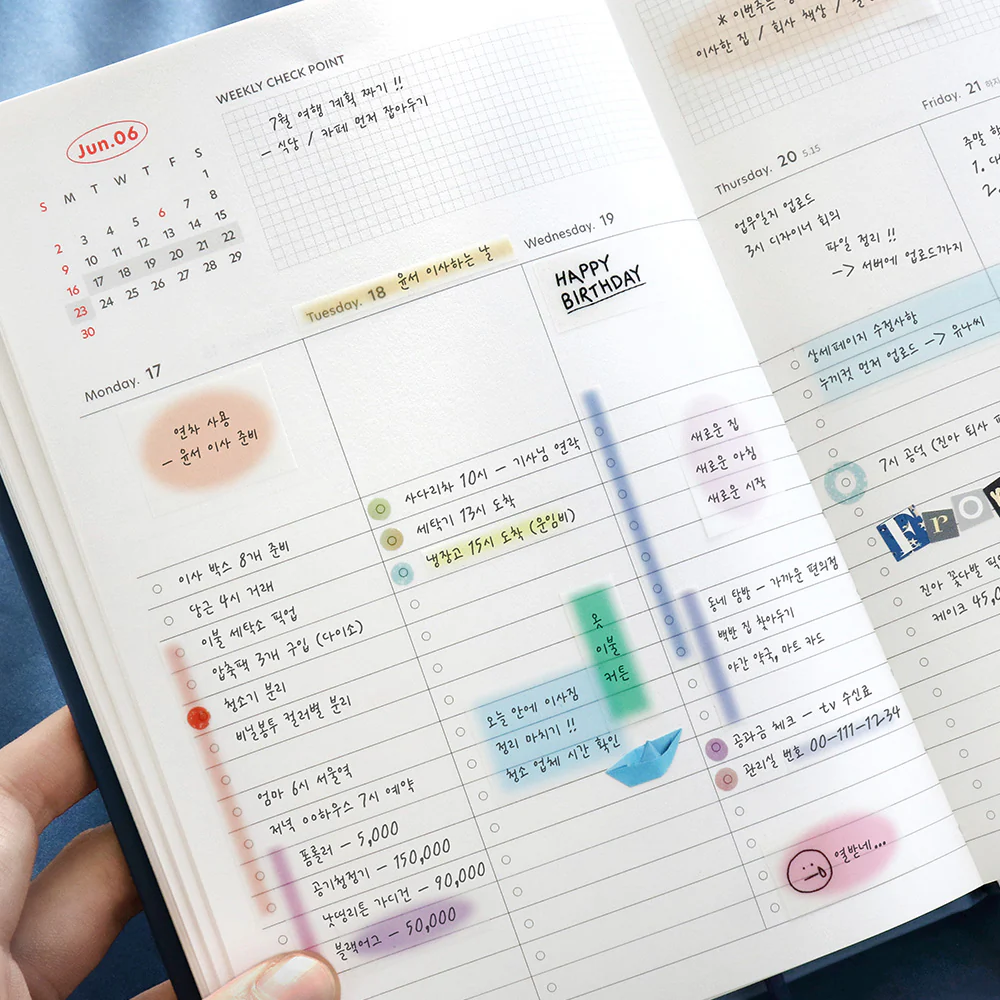 WEEKLY CHECK POINT
7월 여행 계획 짜기 !!
— 식당 / 카페 먼저 잡아두기
Jun.06
S M T W T F S
1
2 3 4 5 6 7 8
9 10 11 12 13 14 15
16 17 18 19 20 21 22
23 24 25 26 27 28 29
30
Monday. 17
연차 사용
— 윤서 이사 준비
이사 박스 8개 준비
당근 4시 거래
이불 세탁소 픽업
압축팩 3개 구입 (다이소)
청소기 분리
비닐봉투 컬러별 분리
엄마 6시 서울역
저녁 00하우스 7시 예약
폼롤러 — 5,000
공기청정기 — 150,000
낫띵리튼 가디건 — 90,000
블랙어그 — 50,000
Tuesday. 18 윤서 이사하는 날
사다리차 10시 — 기사님 연락
세탁기 13시 도착
냉장고 15시 도착 (윤임비)
옷
이불
커튼
오늘 안에 이사짐
정리 마치기 !!
청소 업체 시간 확인
Wednesday. 19
HAPPY
BIRTHDAY
새로운 집
새로운 아침
새로운 시작
동네 탐방 — 가까운 편의점
백반 집 찾아두기
야간 약국, 마트 카드
공과금 체크 — tv 수신료
관리실 번호 00-111-12-34
열받네...
※ 이번주는
이사한 집 / 회사 책상 /
Thursday. 20 5.15
업무일지 업로드
3시 디자이너 회의
파일 정리 !!
—> 서버에 업로드까지
상세페이지 수정사항
누끼컷 먼저 업로드 —> 유나씨
7시 공덕 (진아 퇴사
Fro
진아 꽃다발
케이크 45,0
Friday. 21 하지
주말
1.
2.